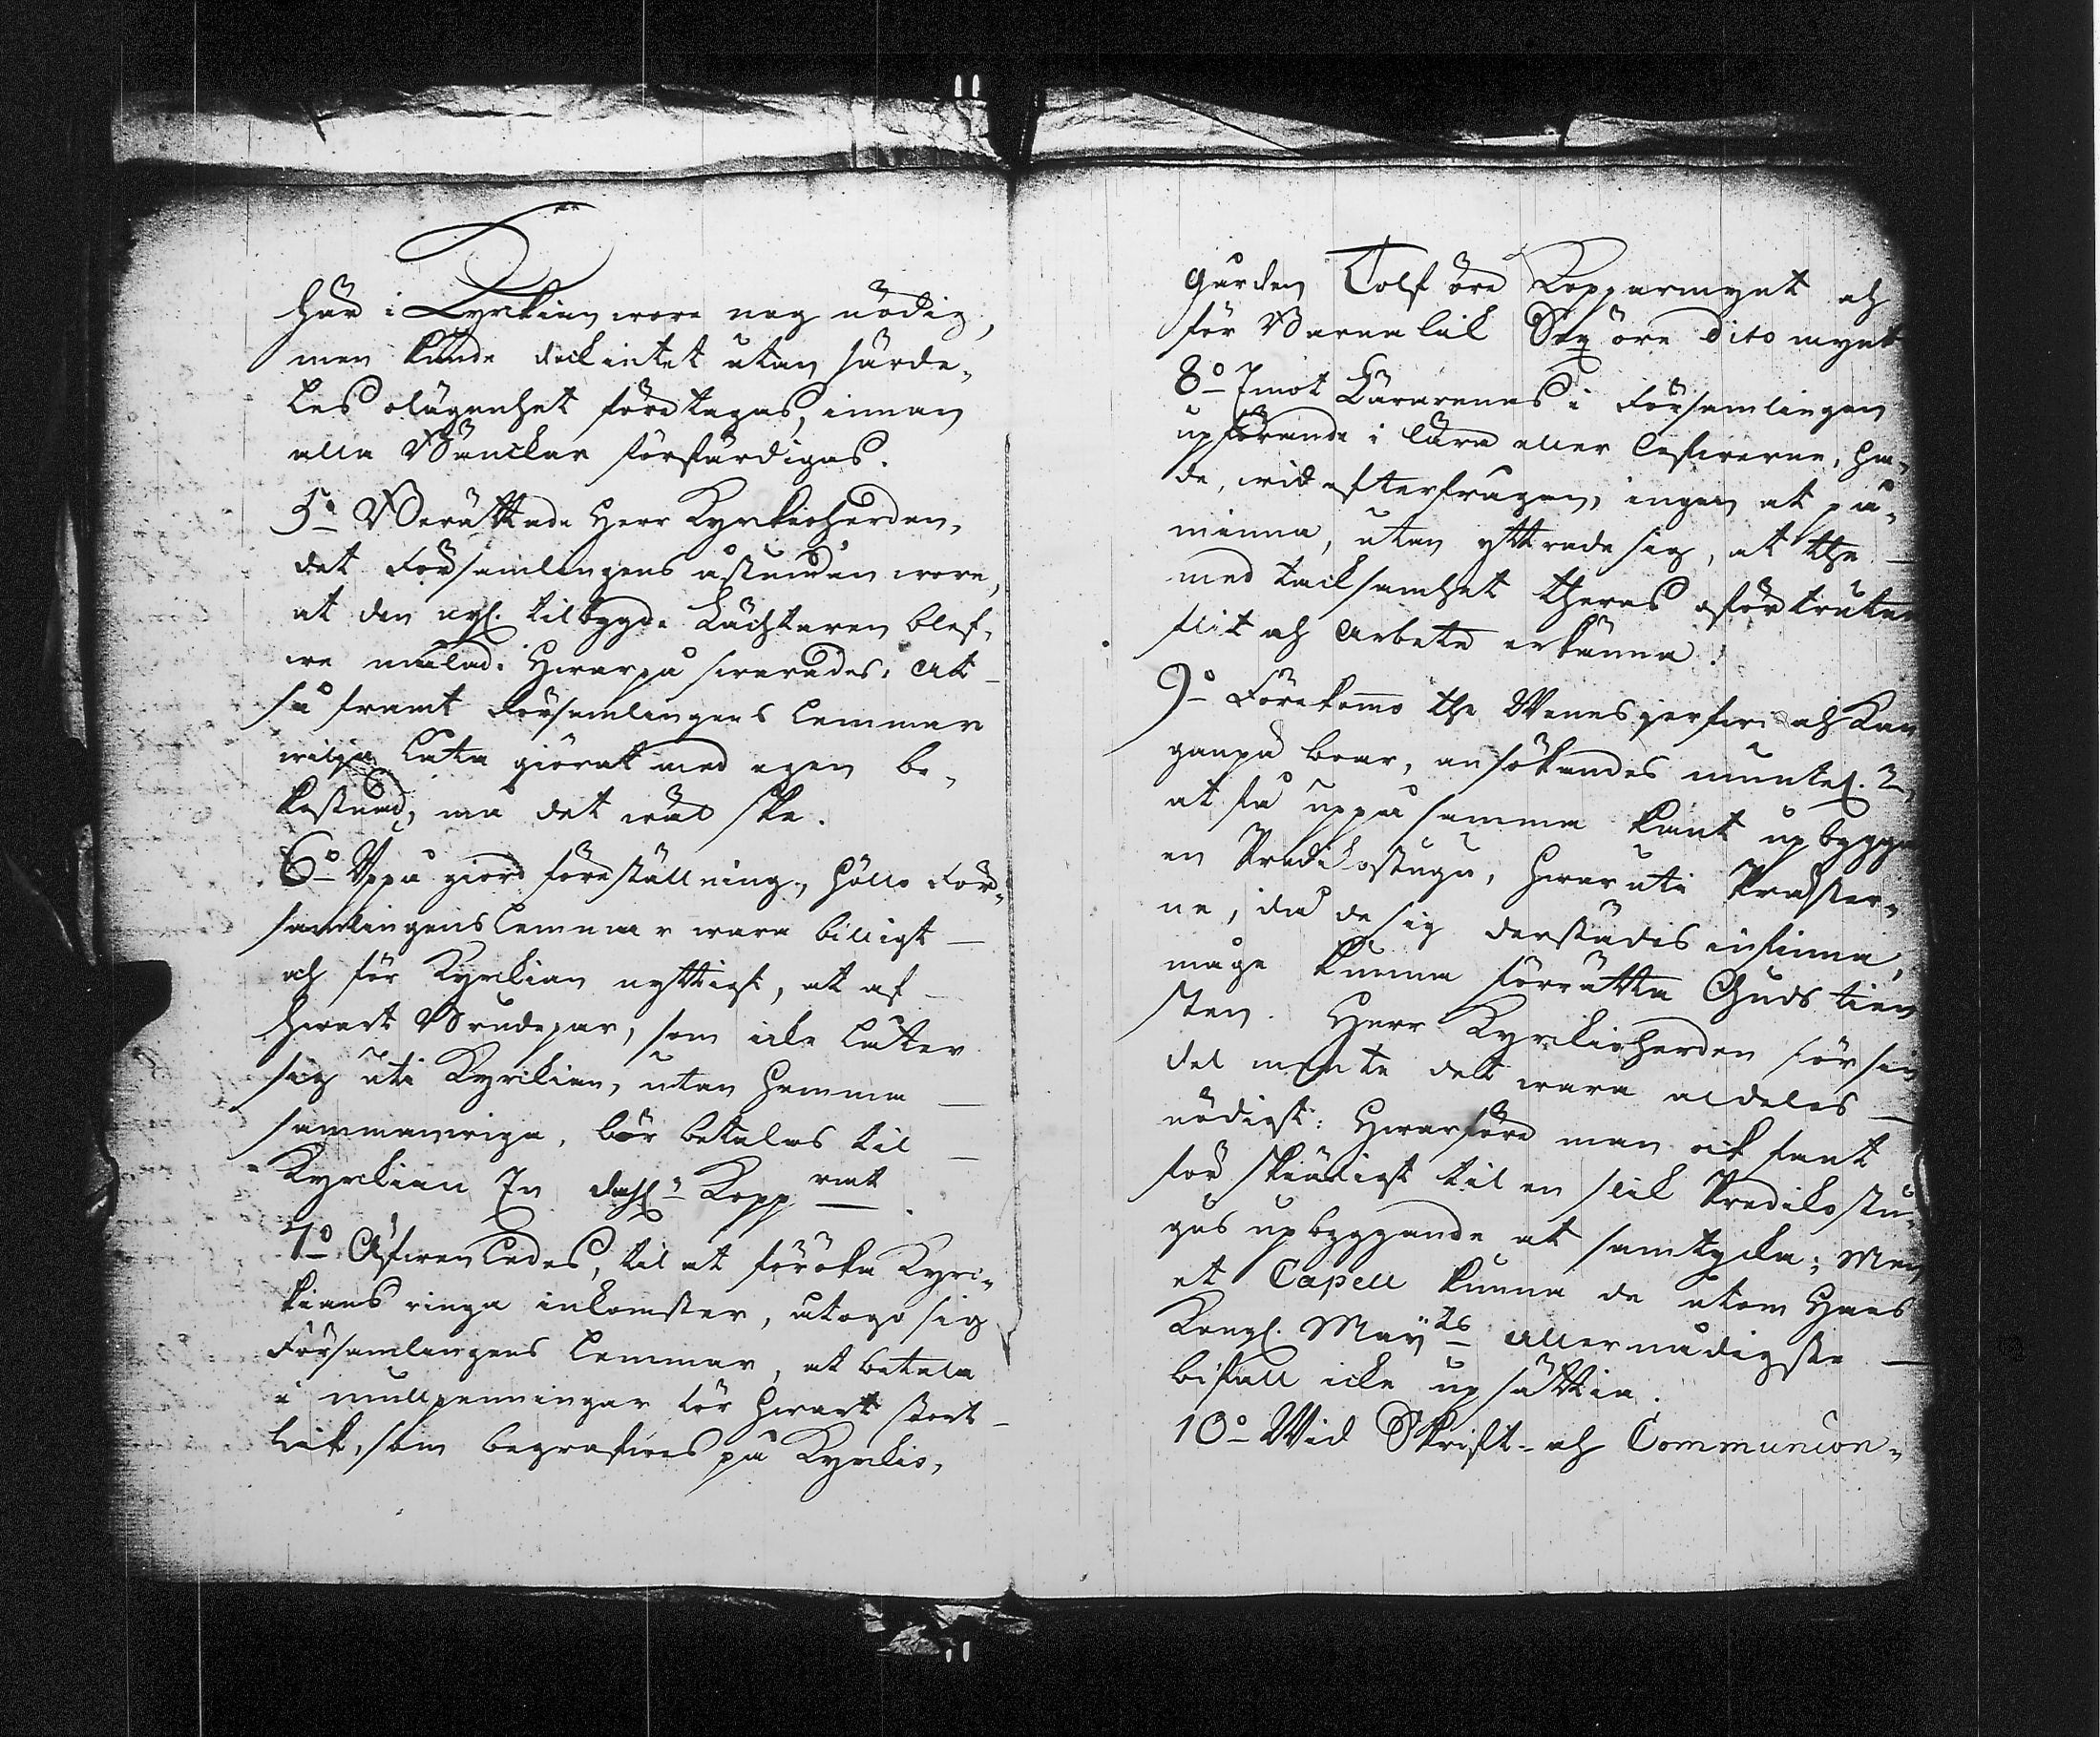 här i Kyrkian wore nog nödig,
men kunde dock intet utan särde-
les olägenhet företagas, innan
alla Bänckar förfärdigas.
5o Berättade Herr Kyrkioherden,
det Församlingens åstundan wore,
at den nyl. tilbygde Lächtaren blef-
we målad. Hwarpå swarades: At
så framt Församlingens lemmar
wilja låta giörat med egen be-
kostnad, må det wäl ske.
6o Uppå giord föreställning, höllo För-
samlingens lemmar wara billigt
och för Kyrkian nyttigt, at af
hwart Brudepar, som icke låter
sig uti Kyrkian, utan hemma
sammanwiga, bör betalas til
Kyrkian En dahl. Kopp mt
7o Äfwenledes, til at föröka Kyr-
kians ringa inkomster, åtogo sig
Församlingens lemmar, at betala
i mullpenningar för hwart stort
lik, som begrafwes på Kyrkio-
gården Tolf öre Koppar mynt och
för Barna lik Sex öre dito mynt
8o Imot Lärarenas i Församlingen
upförande i lära eller lefwerne, ha-
de, wid efterfrågan, ingen at på-
minna, utan yttrade sig, at the
med tacksamhet theras oförtrutne
flit och arbete erkänna.
9o Förekommo the och Kan
ganpä boar, ansökandes muntel.
at få uppå samma kant up bygga
en Predikostuga, hwaruti Prester-
ne, då de sig derstädes infinna,
måge kunna förrätta Guds tien
sten. Herr Kyrkioherden för sin
del mente det wara aldeles
nödigt: Hwarföre man ock fant
för skäligt til en slik Prediko stu-
gas upbyggande at samtycka; Men
et Capell kunna de utom Hans
Kongl. May:ts allernådigste
bifall icke upsättia.
10o Wid Skrift- och Communion-